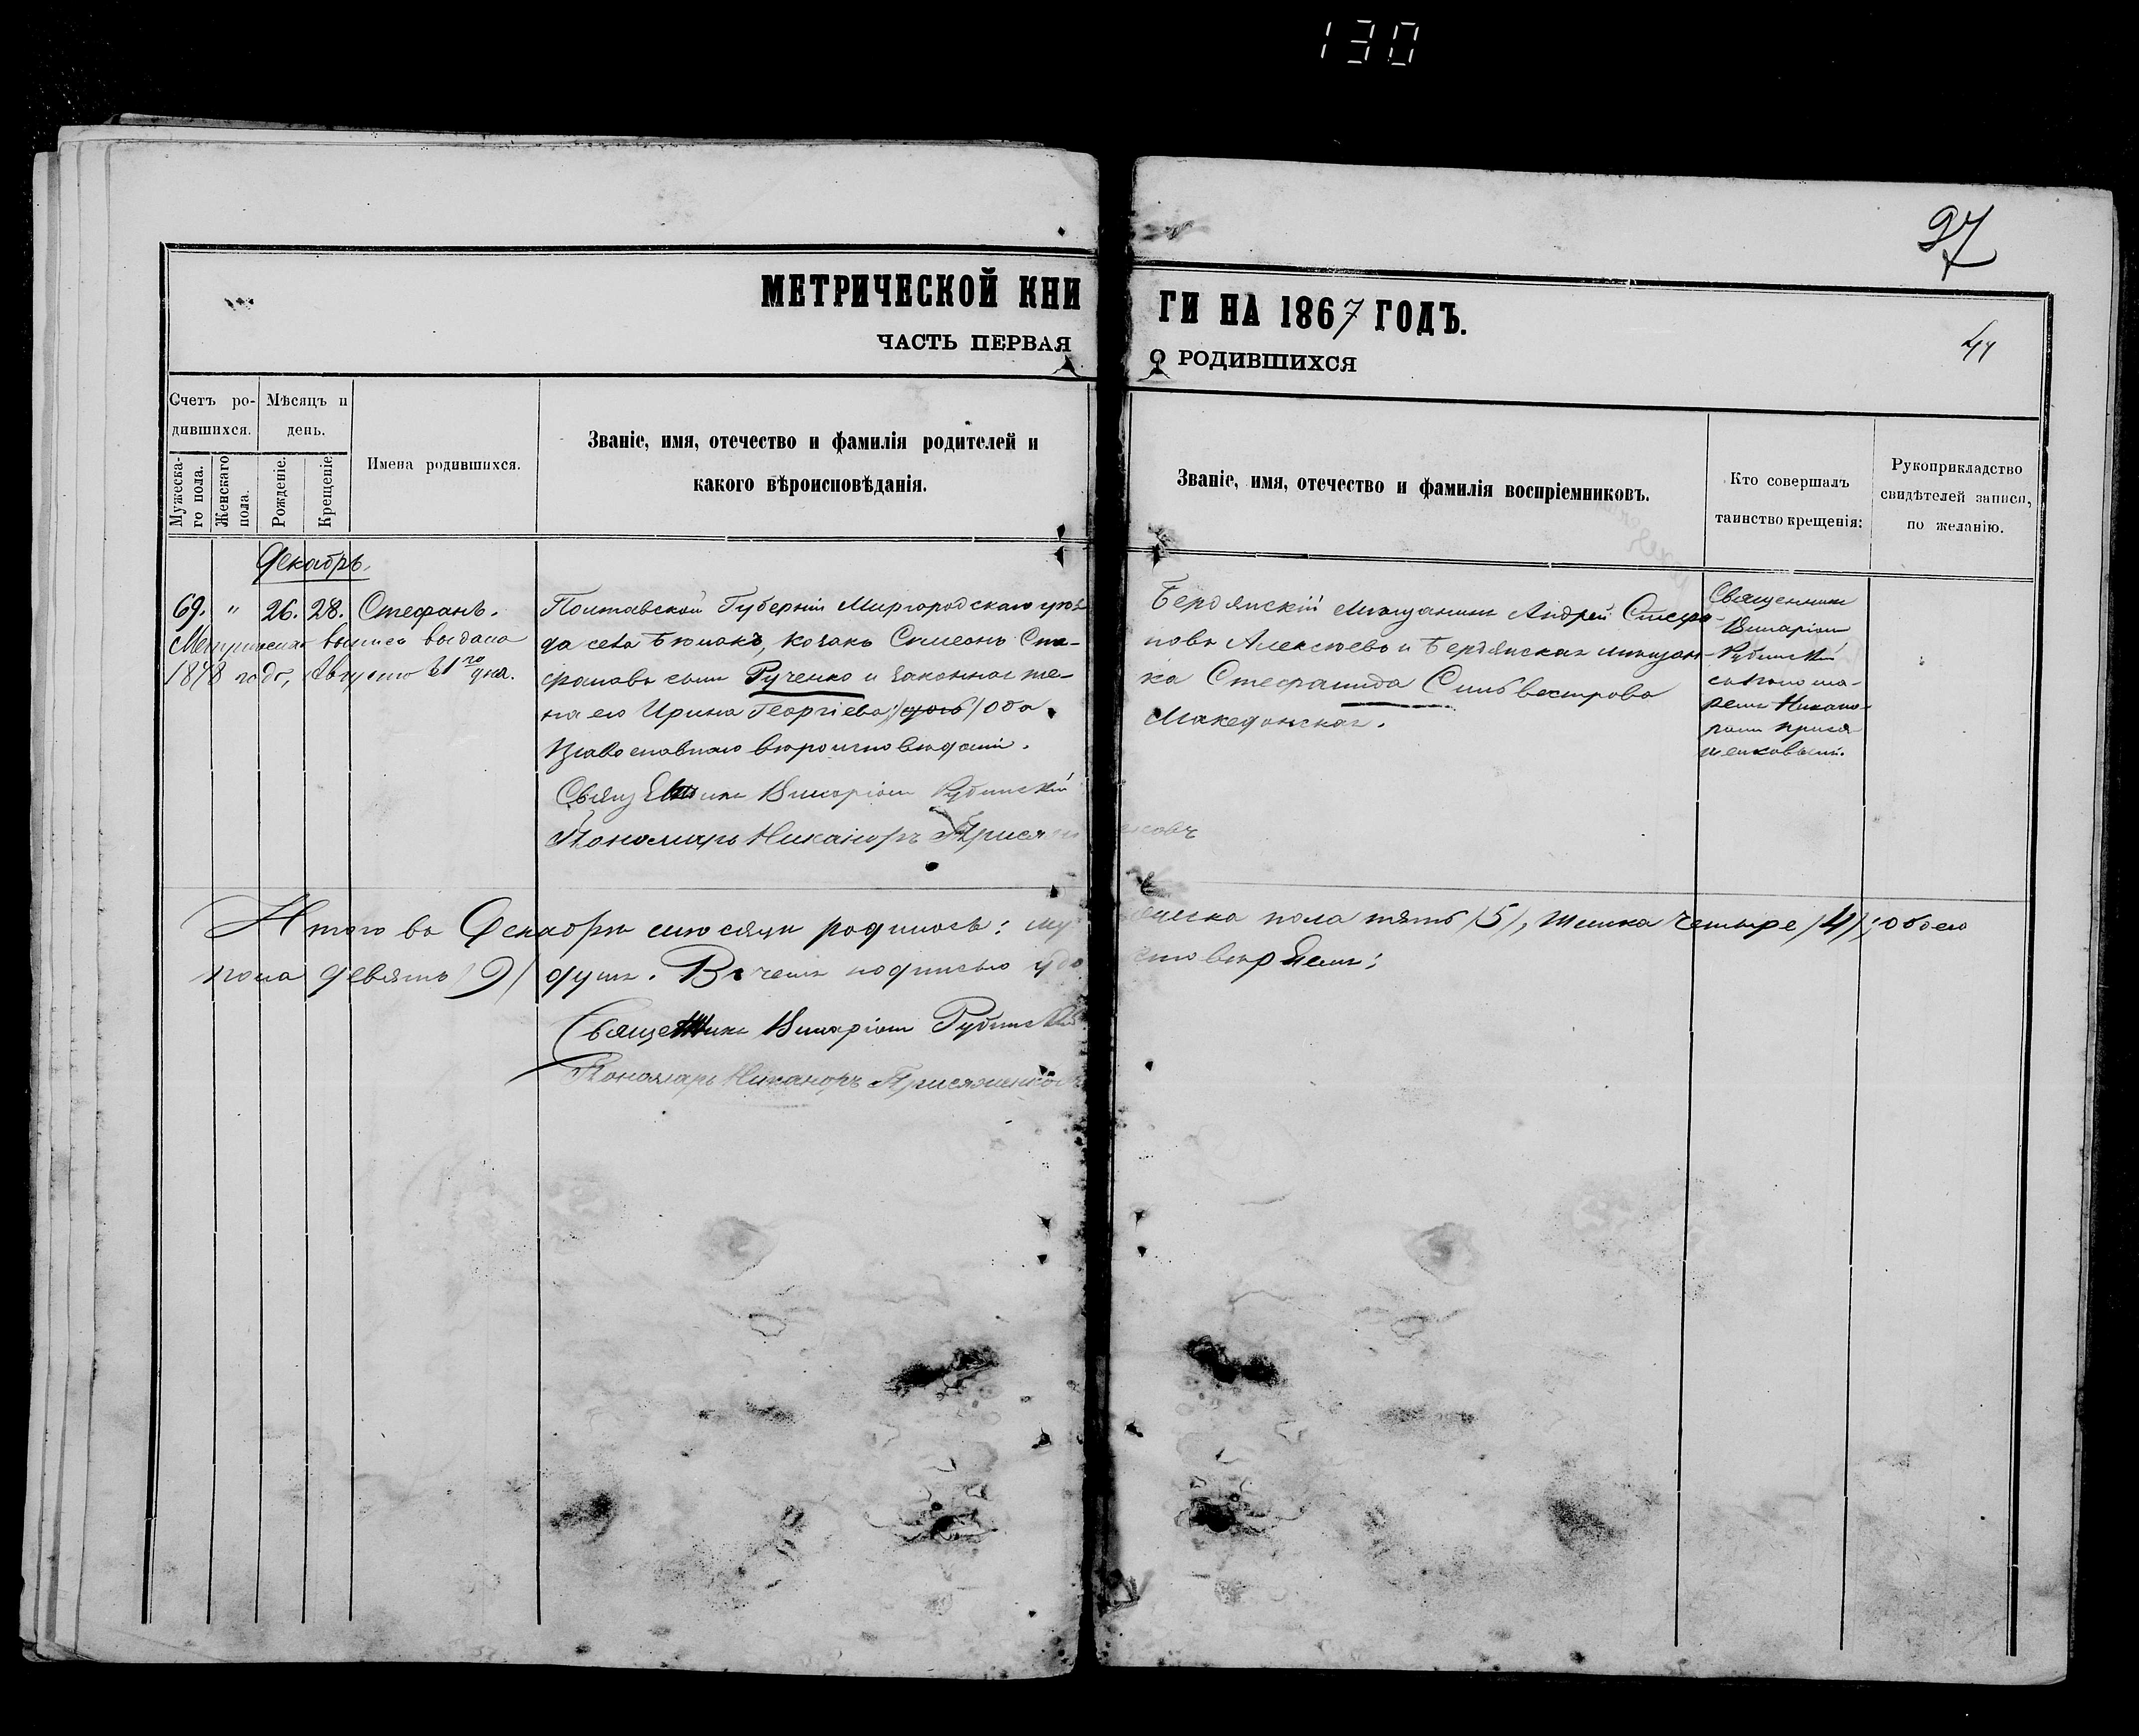 130
97
МЕТРИЧЕСКОЙ КНИГИ НА 1867 ГОДЪ.
ЧАСТЬ ПЕРВАЯ О РОДИВШИХСЯ
44
Счетъ родившихся.
Мѣсяцъ и день.
Мужескаго пола.
Женскаго пола.
Рожденіе.
Крещеніе.
Имена родившихся.
Званіе, имя, отечество и фамилія родителей и
какого вѣроисповѣданія.
Званіе, имя, отечество и фамилія воспріемниковъ.
Кто совершалъ
таинство крещенія:
Рукоприкладство
свидѣтелей записи,
по желанію.
Декабрь.
69. " 26. 28. Стефанъ.
Метрическая выпись выдана
1878 года, Августа 21го дня.
Полтавской Губерніи Миргородскаго уѣз-
да села козакъ Симеонъ Сте-
фановъ сынъ Рученко и законная же-
на его Ирина Георгіева, оба
Православнаго вѣроисповѣданія.
Священникъ Рубинскій
Пономарь Никаноръ Присяженковъ
Бердянскій мѣщанинъ Андрей Стефа-
новъ Алексѣевъ и Бердянская мѣщан-
ка Стефанида Сильвестрова
Македонская.
Священникъ
Рубинскій
съ поно ма-
ремъ Никано-
ромъ Прися
женковымъ.
Итого въ Декабрѣ мѣсяцѣ родилось: мужеска пола пять /5/, женска четыре /4/; обоего
пола девять /9/ душъ. Въ чемъ подписью удостовѣряемъ:
Священникъ Рубинскій
Пономарь Никаноръ Присяженковъ